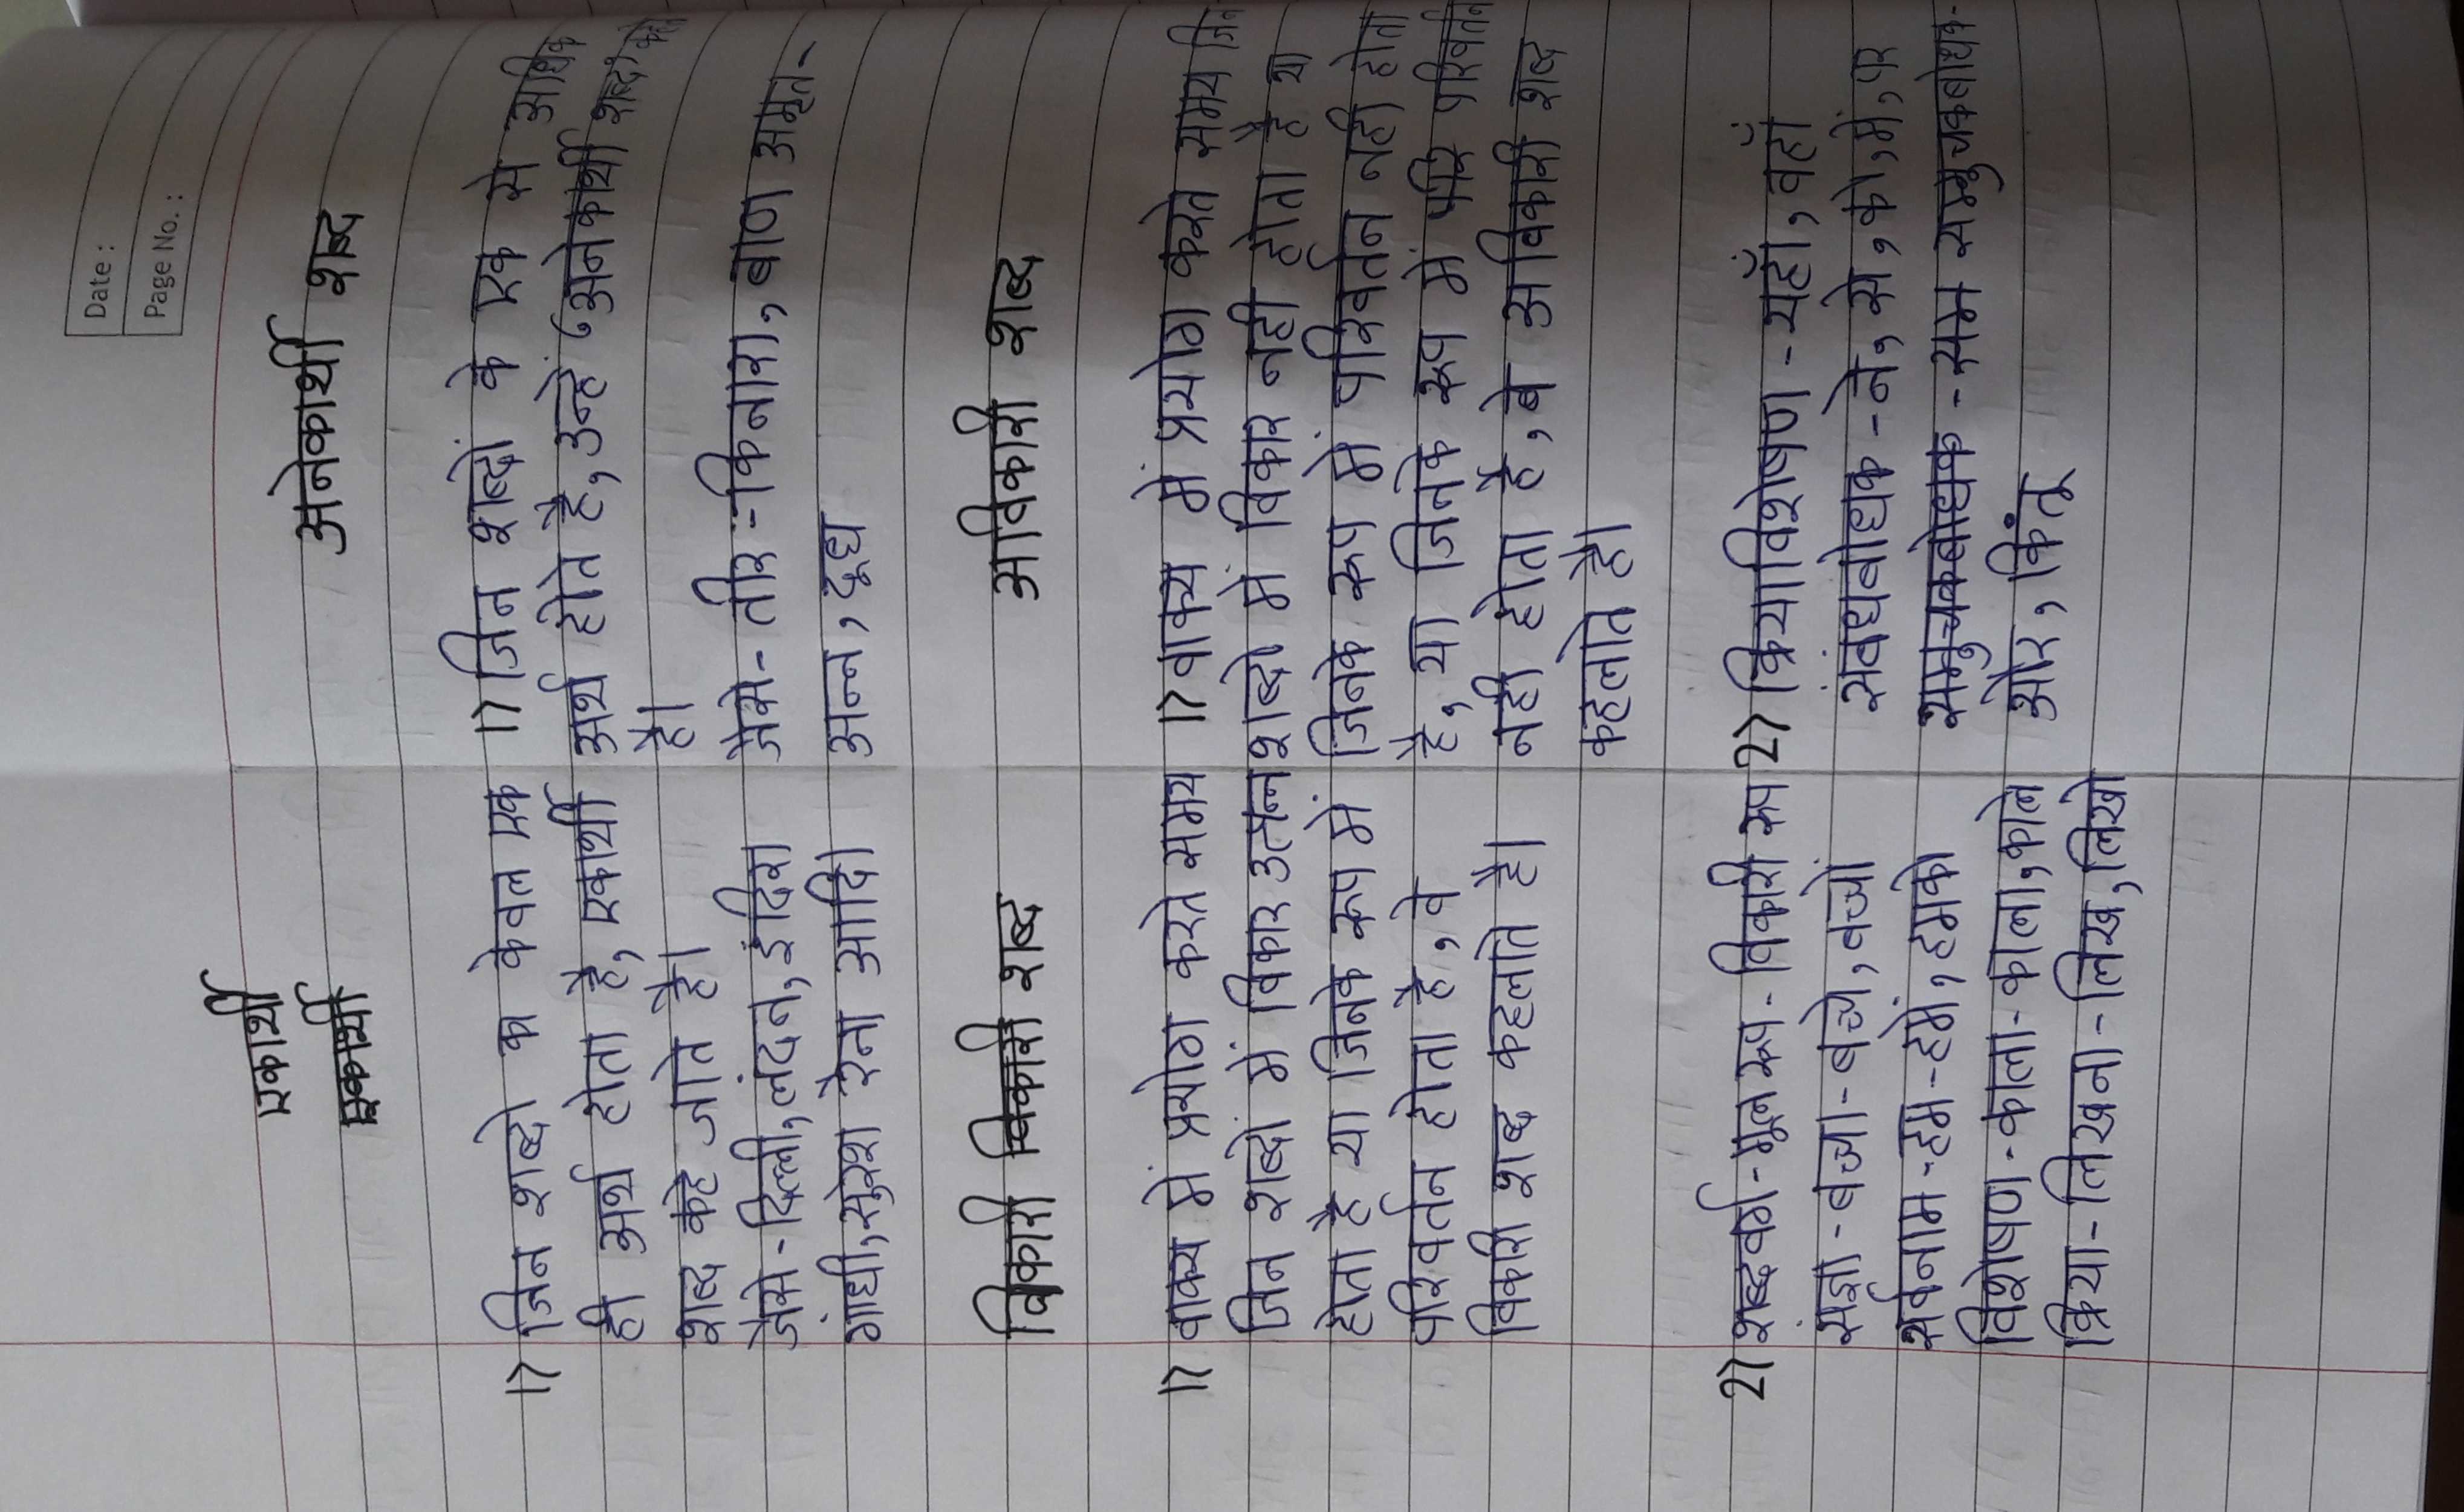 Date :
Page No. :
एकार्थी
एकार्थी
1) जिन शब्दो का केवल एक
ही अर्थ होता है, एकार्थी
शब्द कहे जाते है।
जैसे - दिल्ली, लंदन, इंदिरा
गांधी, सुरेश रैना आदि।
अनेकार्थी शब्द
1) जिन शब्दों के एक से अधिक
अर्थ होते है, उन्हें अनेकार्थी शब्द कहते
है।
जैसे - तीर - किनारा, बाण अमृत -
अन्न, दूध
विकारी विकारी शब्द
1) वाक्य में प्रयोग करते समय
जिन शब्दों में विकार उत्पन्न
होता है या जिनके रूप में
परिवर्तन होता है, वे
विकारी शब्द कहलाते है।
अविकारी शब्द
1) वाक्य में प्रयोग करते समय जिन
शब्दो में विकार नही होता है या
जिनके रूप में परिवर्तन नही होता
है, या जिनके रूप में परि परिवर्तन
नही होता है, वे अविकारी शब्द
कहलाते है।
2) शब्दवर्ग - मूल रूप - विकारी रूप
संज्ञा - बच्चा - बच्चे, बच्चों
सर्वनाम - हम - हमें, हमको
विशेषण - काला - काला, काले
क्रिया - लिखना - लिख, लिखो
2) क्रियाविशेषण - यहाँ, वहाँ
संबंधबोधक - ने, से, को, में, पर
समुच्चकबोधक - सम समुच्चकबोधक -
और, किंतू